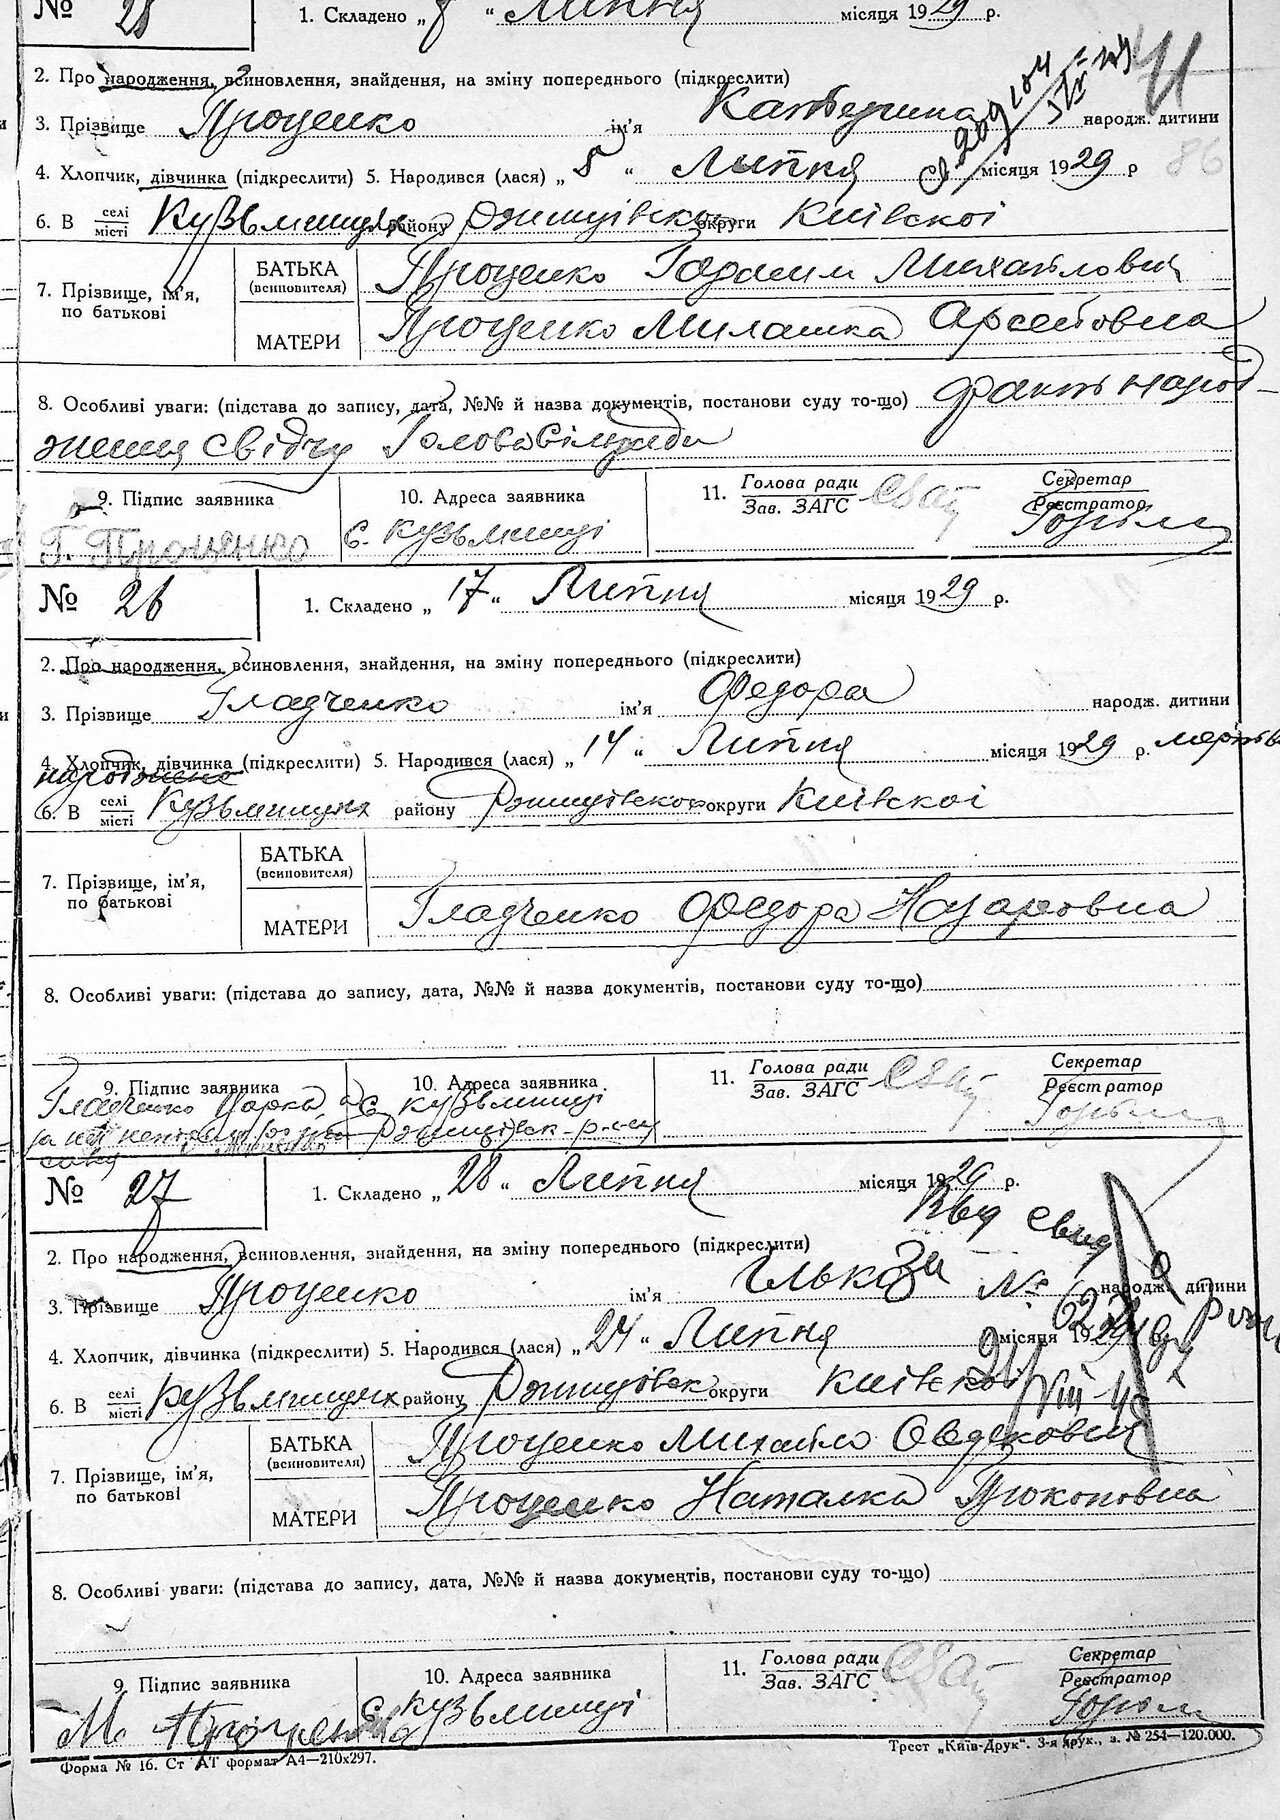 № 25 1. Складено „ 8 “ Липня місяця 1929 р.
2. Про народження, всиновлення, знайдення, на зміну попереднього (підкреслити)
3. Прізвище Проценко ім'я Катерина народж. дитини
4. Хлопчик, дівчинка (підкреслити) 5. Народився (лася) „ 5 “ Липня місяця 1929 р
86
6. В селі/місті Кузьминцях району Ржищівськ округи Київскої
7. Прізвище, ім'я, по батькові
БАТЬКА (всиновителя) Проценко Михайлович
МАТЕРИ Проценко Милашка Арсентовна
8. Особливі уваги: (підстава до запису, дата, №№ й назва документів, постанови суду то-що) факт народ-
ження свідчу Голова Сільради
9. Підпис заявника 10. Адреса заявника 11. Голова ради / Зав. ЗАГС Секретар / Реєстратор
Г. Проценко с. Кузьминці
№ 26 1. Складено „ 17 “ Липня місяця 1929 р.
2. Про народження, всиновлення, знайдення, на зміну попереднього (підкреслити)
3. Прізвище Гладченко ім'я Федора народж. дитини
4. Хлопчик, дівчинка (підкреслити) 5. Народився (лася) „ 14 “ Липня місяця 1929 р. мертво
народжене
6. В селі/місті Кузьминцях району Ржищівськ округи Київскої
7. Прізвище, ім'я, по батькові
БАТЬКА (всиновителя)
МАТЕРИ Гладченко Федора Назаровна
8. Особливі уваги: (підстава до запису, дата, №№ й назва документів, постанови суду то-що)
9. Підпис заявника 10. Адреса заявника 11. Голова ради / Зав. ЗАГС Секретар / Реєстратор
Гладченко с. Кузьминці
Ржищівськ р-ну
№ 27 1. Складено „ 28 “ Липня місяця 1929 р.
2. Про народження, всиновлення, знайдення, на зміну попереднього (підкреслити)
3. Прізвище Проценко ім'я Ілько народж. дитини
4. Хлопчик, дівчинка (підкреслити) 5. Народився (лася) „ 24 “ Липня місяця 1929 р
6. В селі/місті Кузьминцях району Ржищівськ округи Київскої
7. Прізвище, ім'я, по батькові
БАТЬКА (всиновителя) Проценко Михайло
МАТЕРИ Проценко Наталка Прокоповна
8. Особливі уваги: (підстава до запису, дата, №№ й назва документів, постанови суду то-що)
9. Підпис заявника 10. Адреса заявника 11. Голова ради / Зав. ЗАГС Секретар / Реєстратор
М. Проценко с. Кузьминці
Форма № 16. Ст АТ формат А4—210х297. Трест „Київ-Друк“. 3-я друк., з. № 254—120.000.